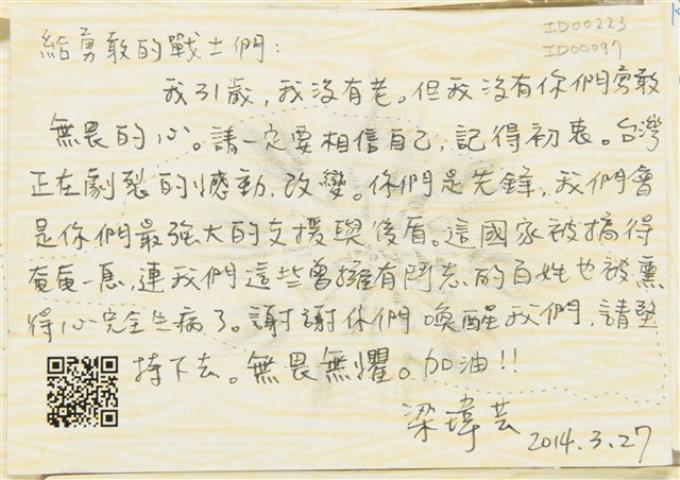 ID00223
ID00097
給勇敢的戰士們：
我31歲，我沒有老。但我沒有你們勇敢
無畏的心。請一定要相信自己，記得初衷。台灣
正在劇裂的憾動、改變。你們是先鋒，我們會
是你們最強大的支援與後盾。這國家被搞得
奄奄一息，連我們這些曾擁有鬥志的百姓也被熏
得心完全生病了。謝謝你們喚醒我們，請堅
持下去。無畏無懼。加油!!
梁瑋芸
2014.3.27